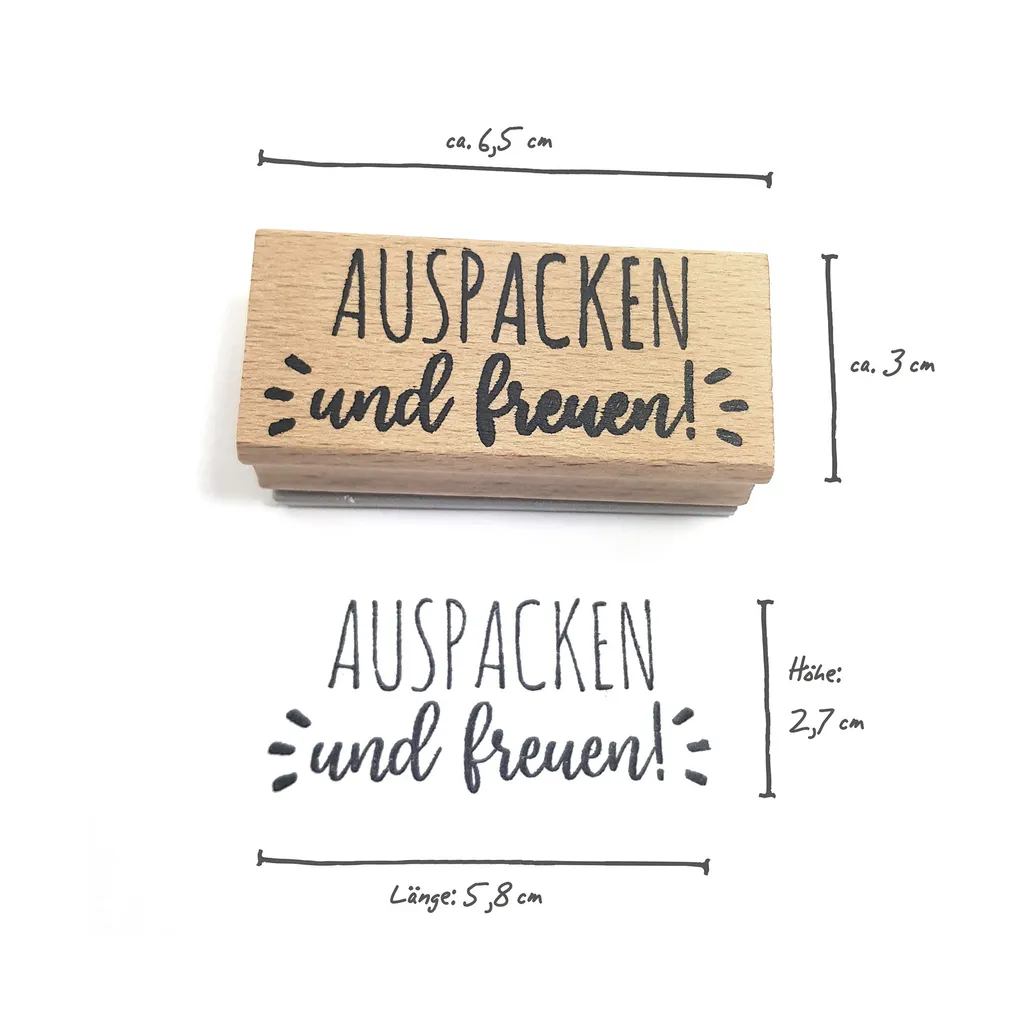 ca. 6,5 cm
AUSPACKEN
und freuen!
ca. 3 cm
AUSPACKEN
und freuen!
Höhe:
2,7 cm
Länge: 5,8 cm